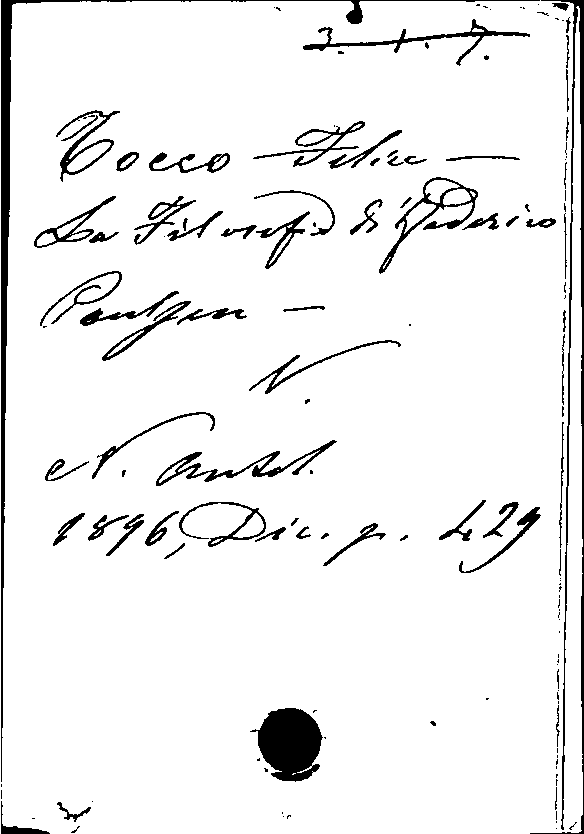 3. 1. 7.
Tocco - Felice -
La Filosofia di Federico
Paulsen -
V.
N. Antol.
1896, Dic. p. 429